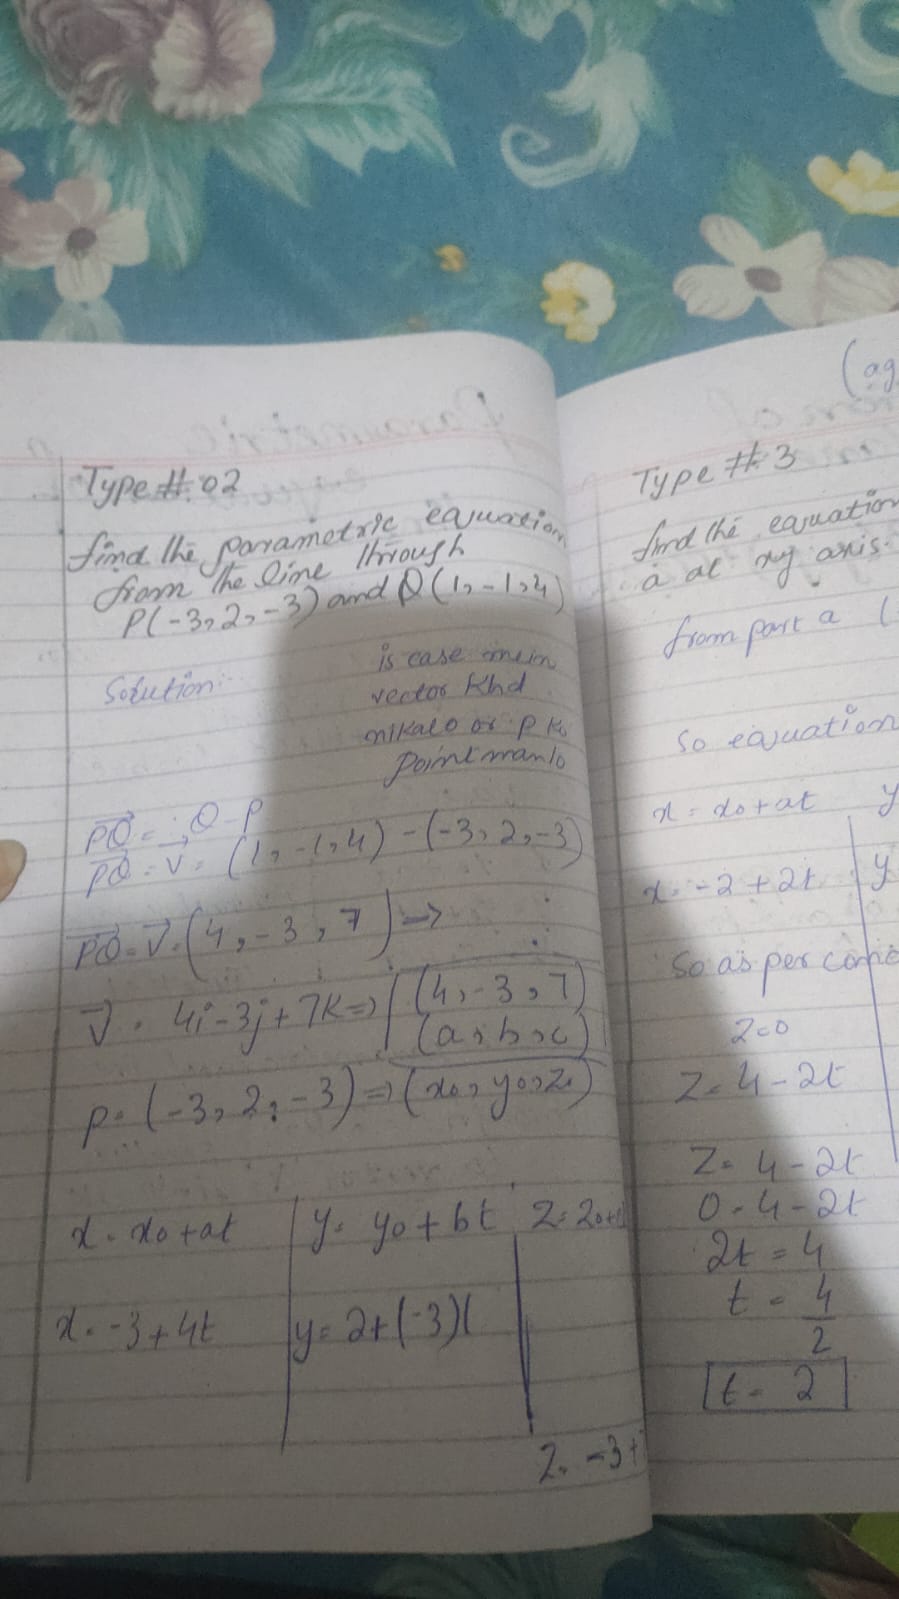 Type #. 02
find the parametric equation
from the line through
P(-3, 2, -3) and Q(1, -1, 4)
Solution:-
is case mein
vector khd
nikalo or P ko
Point manlo
PQ = Q - P
PQ = V = (1, -1, 4) - (-3, 2, -3)
PQ = V = (4, -3, 7) →
V = 4i - 3j + 7k => (4, -3, 7)
(a, b, c)
P = (-3, 2, -3) => (x0, y0, z0)
x = x0 + at
y = y0 + bt
x = -3 + 4t
y = 2 + (-3)(
z = -3 +
(ag
Type #. 3
find the equation
a at xy axis.
from part a (
So equation
x = x0 + at y
x = -2 + 2t y
So as per
z = 0
z = 4 - 2t
z = 4 - 2t
0 = 4 - 2t
2t = 4
t = 4
2
t = 2